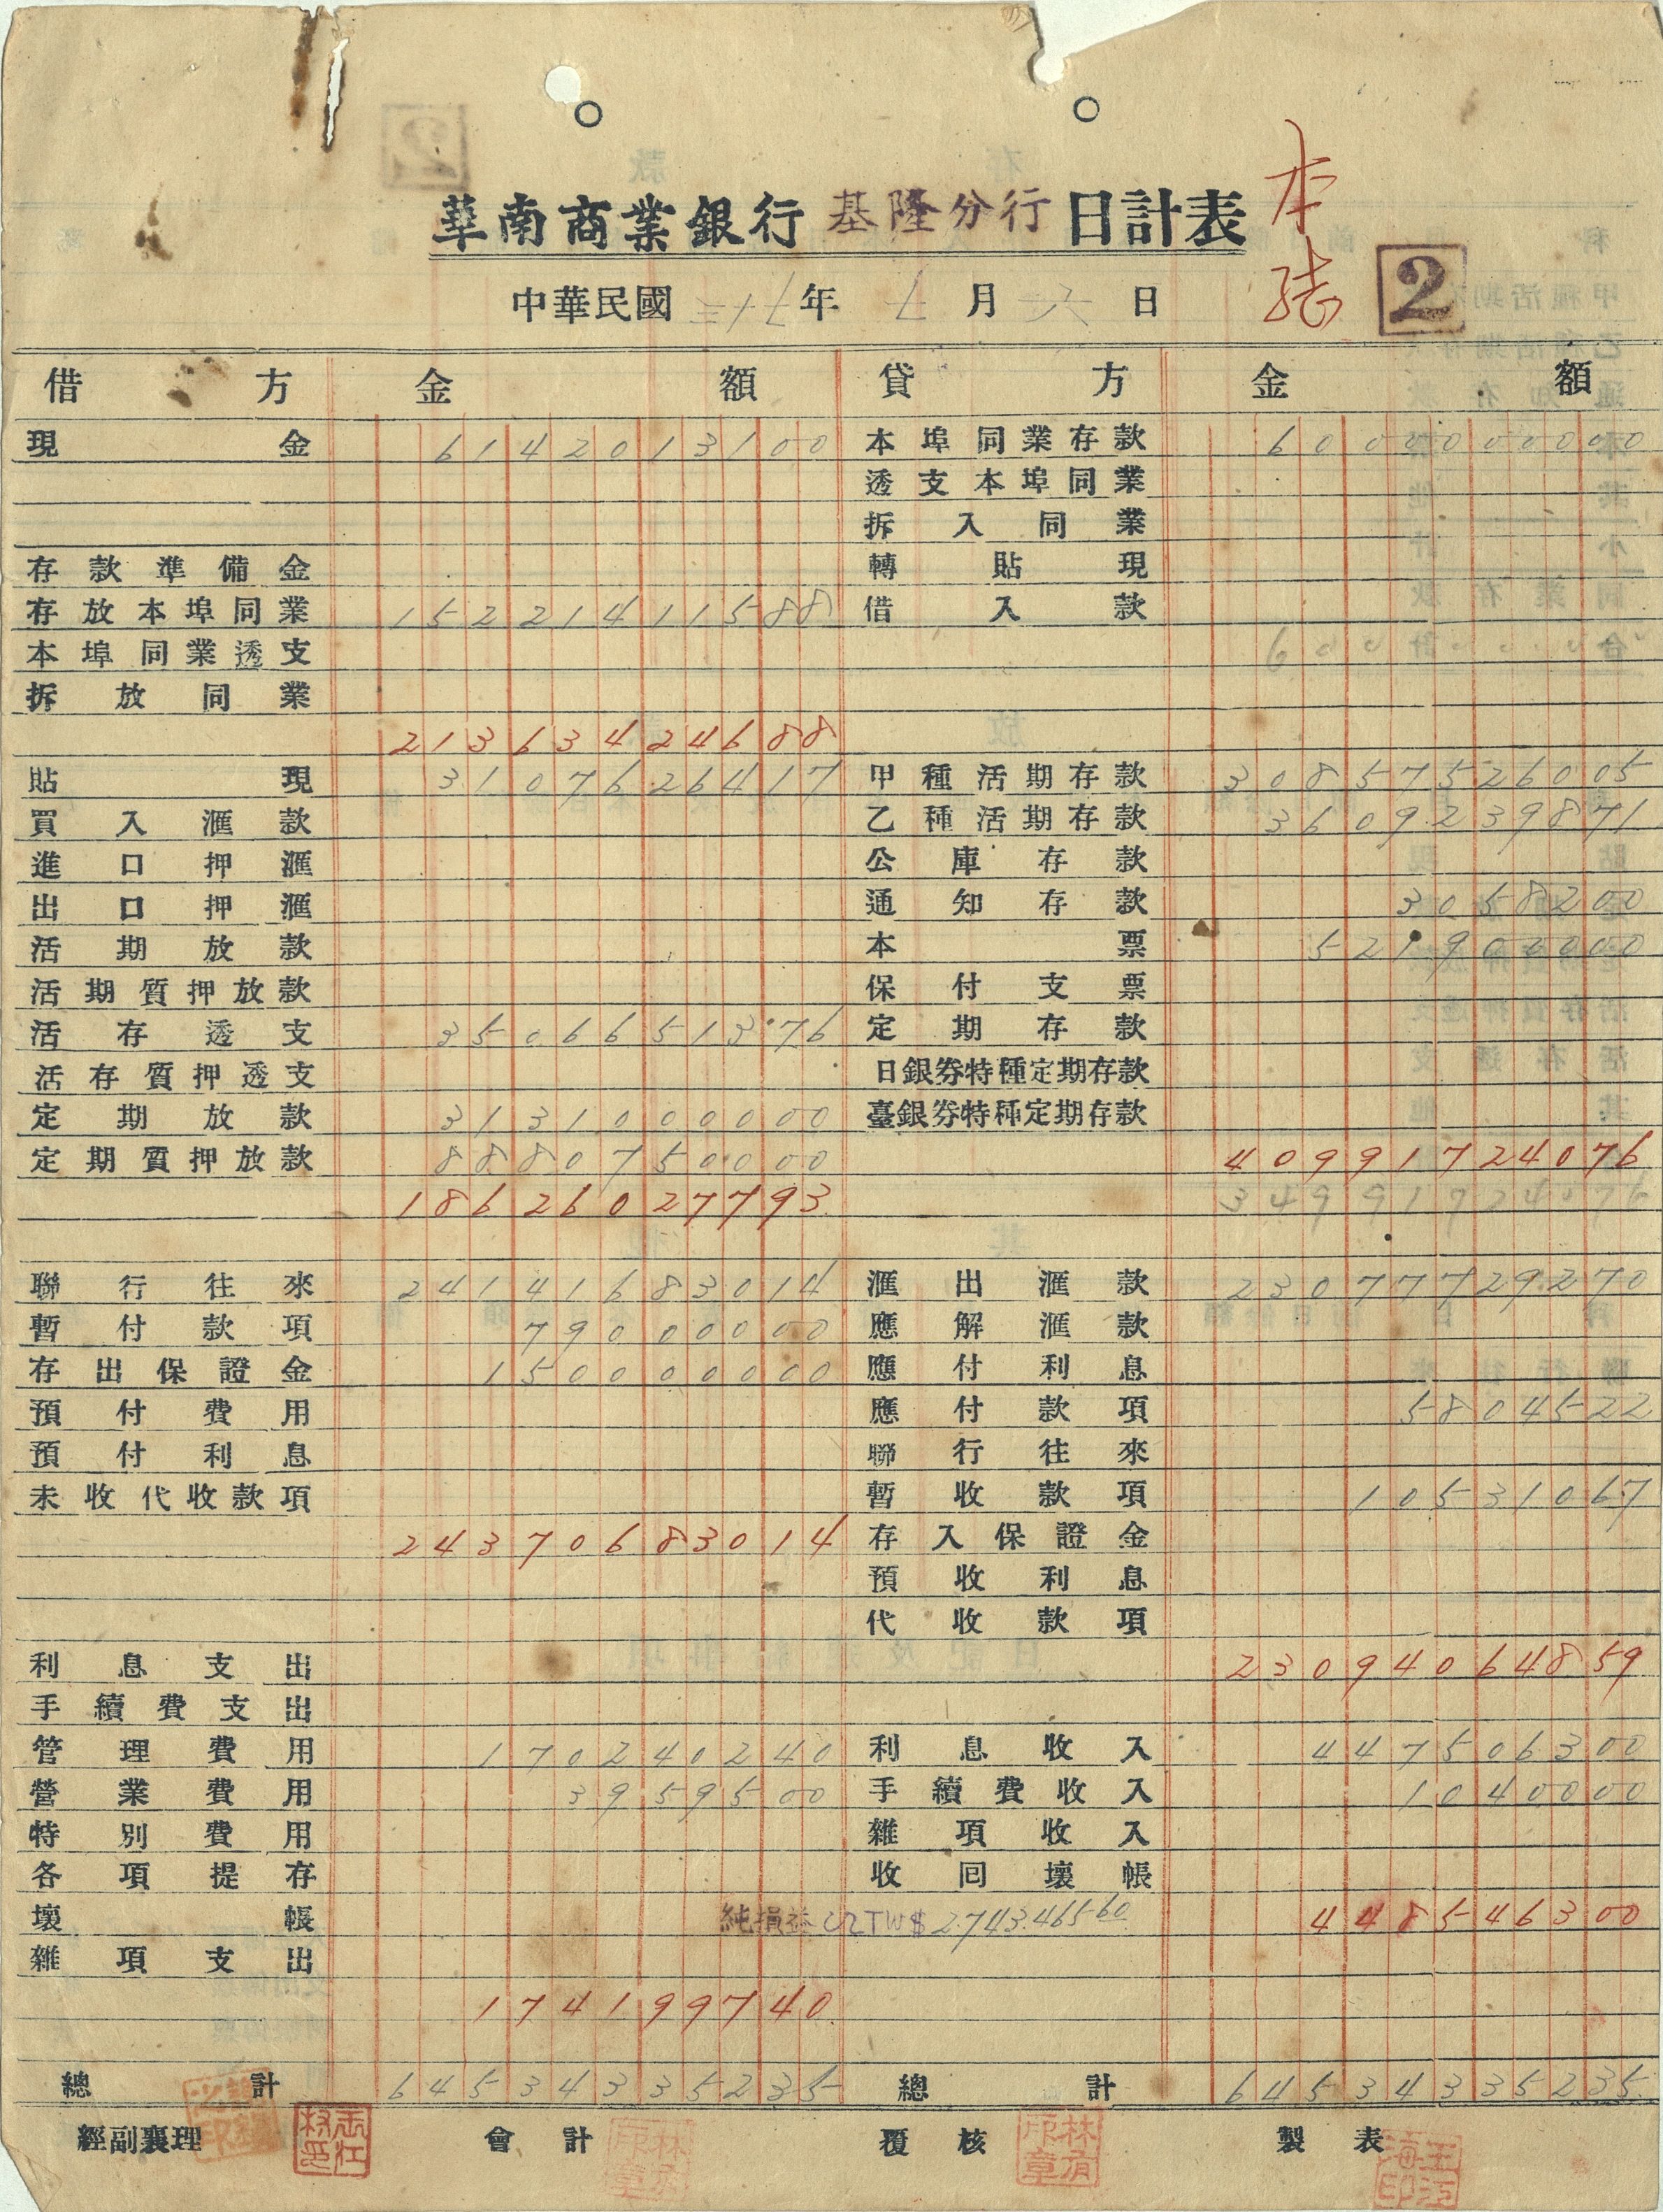 本張
華南商業銀行 基隆分行 日計表
2
中華民國 三十七年 七月 六日
借方 金額 貸方 金額
現金 6142013100 本埠同業存款 6000000000
透支本埠同業
拆入同業
存款準備金 轉貼現
存放本埠同業 15221411588 借入款
本埠同業透支 6000000000
拆放同業
21363424688
貼現 3107626417 甲種活期存款 30857526005
買入滙款 乙種活期存款 3609239871
進口押滙 公庫存款
出口押滙 通知存款 3058200
活期放款 本票 521900000
活期質押放款 保付支票
活存透支 3506651376 定期存款
活存質押透支 日銀券特種定期存款
定期放款 3131000000 臺銀券特種定期存款
定期質押放款 8880750000 40991724076
18626027793 34991724076
聯行往來 24141683014 滙出滙款 23077729270
暫付款項 79000000 應解滙款
存出保證金 150000000 應付利息
預付費用 應付款項 5804522
預付利息 聯行往來
未收代收款項 暫收款項 10531067
24370683014 存入保證金
預收利息
代收款項
利息支出 23094064859
手續費支出
管理費用 170240240 利息收入 447506300
營業費用 3959500 手續費收入 1040000
特別費用 雜項收入
各項提存 收回壞帳
壞帳 純損益 TW$ 2.743.465.60 448546300
雜項支出
174199740
總計 64534335235 總計 64534335235
經副襄理 會計 覆核 製表